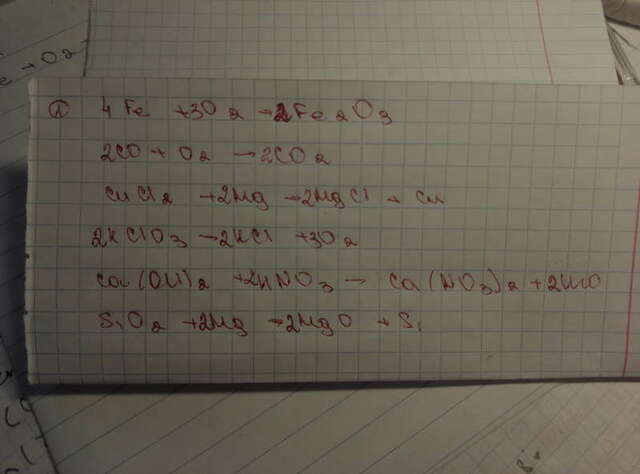 e + O2
① 4Fe + 3O2 → 2Fe2O3
2CO + O2 → 2CO2
CuCl2 + 2Mg → 2MgCl + Cu
2KClO3 → 2KCl + 3O2
Ca(OH)2 + 2HNO3 → Ca(NO3)2 + 2HHO
SiO2 + 2Mg → 2MgO + Si